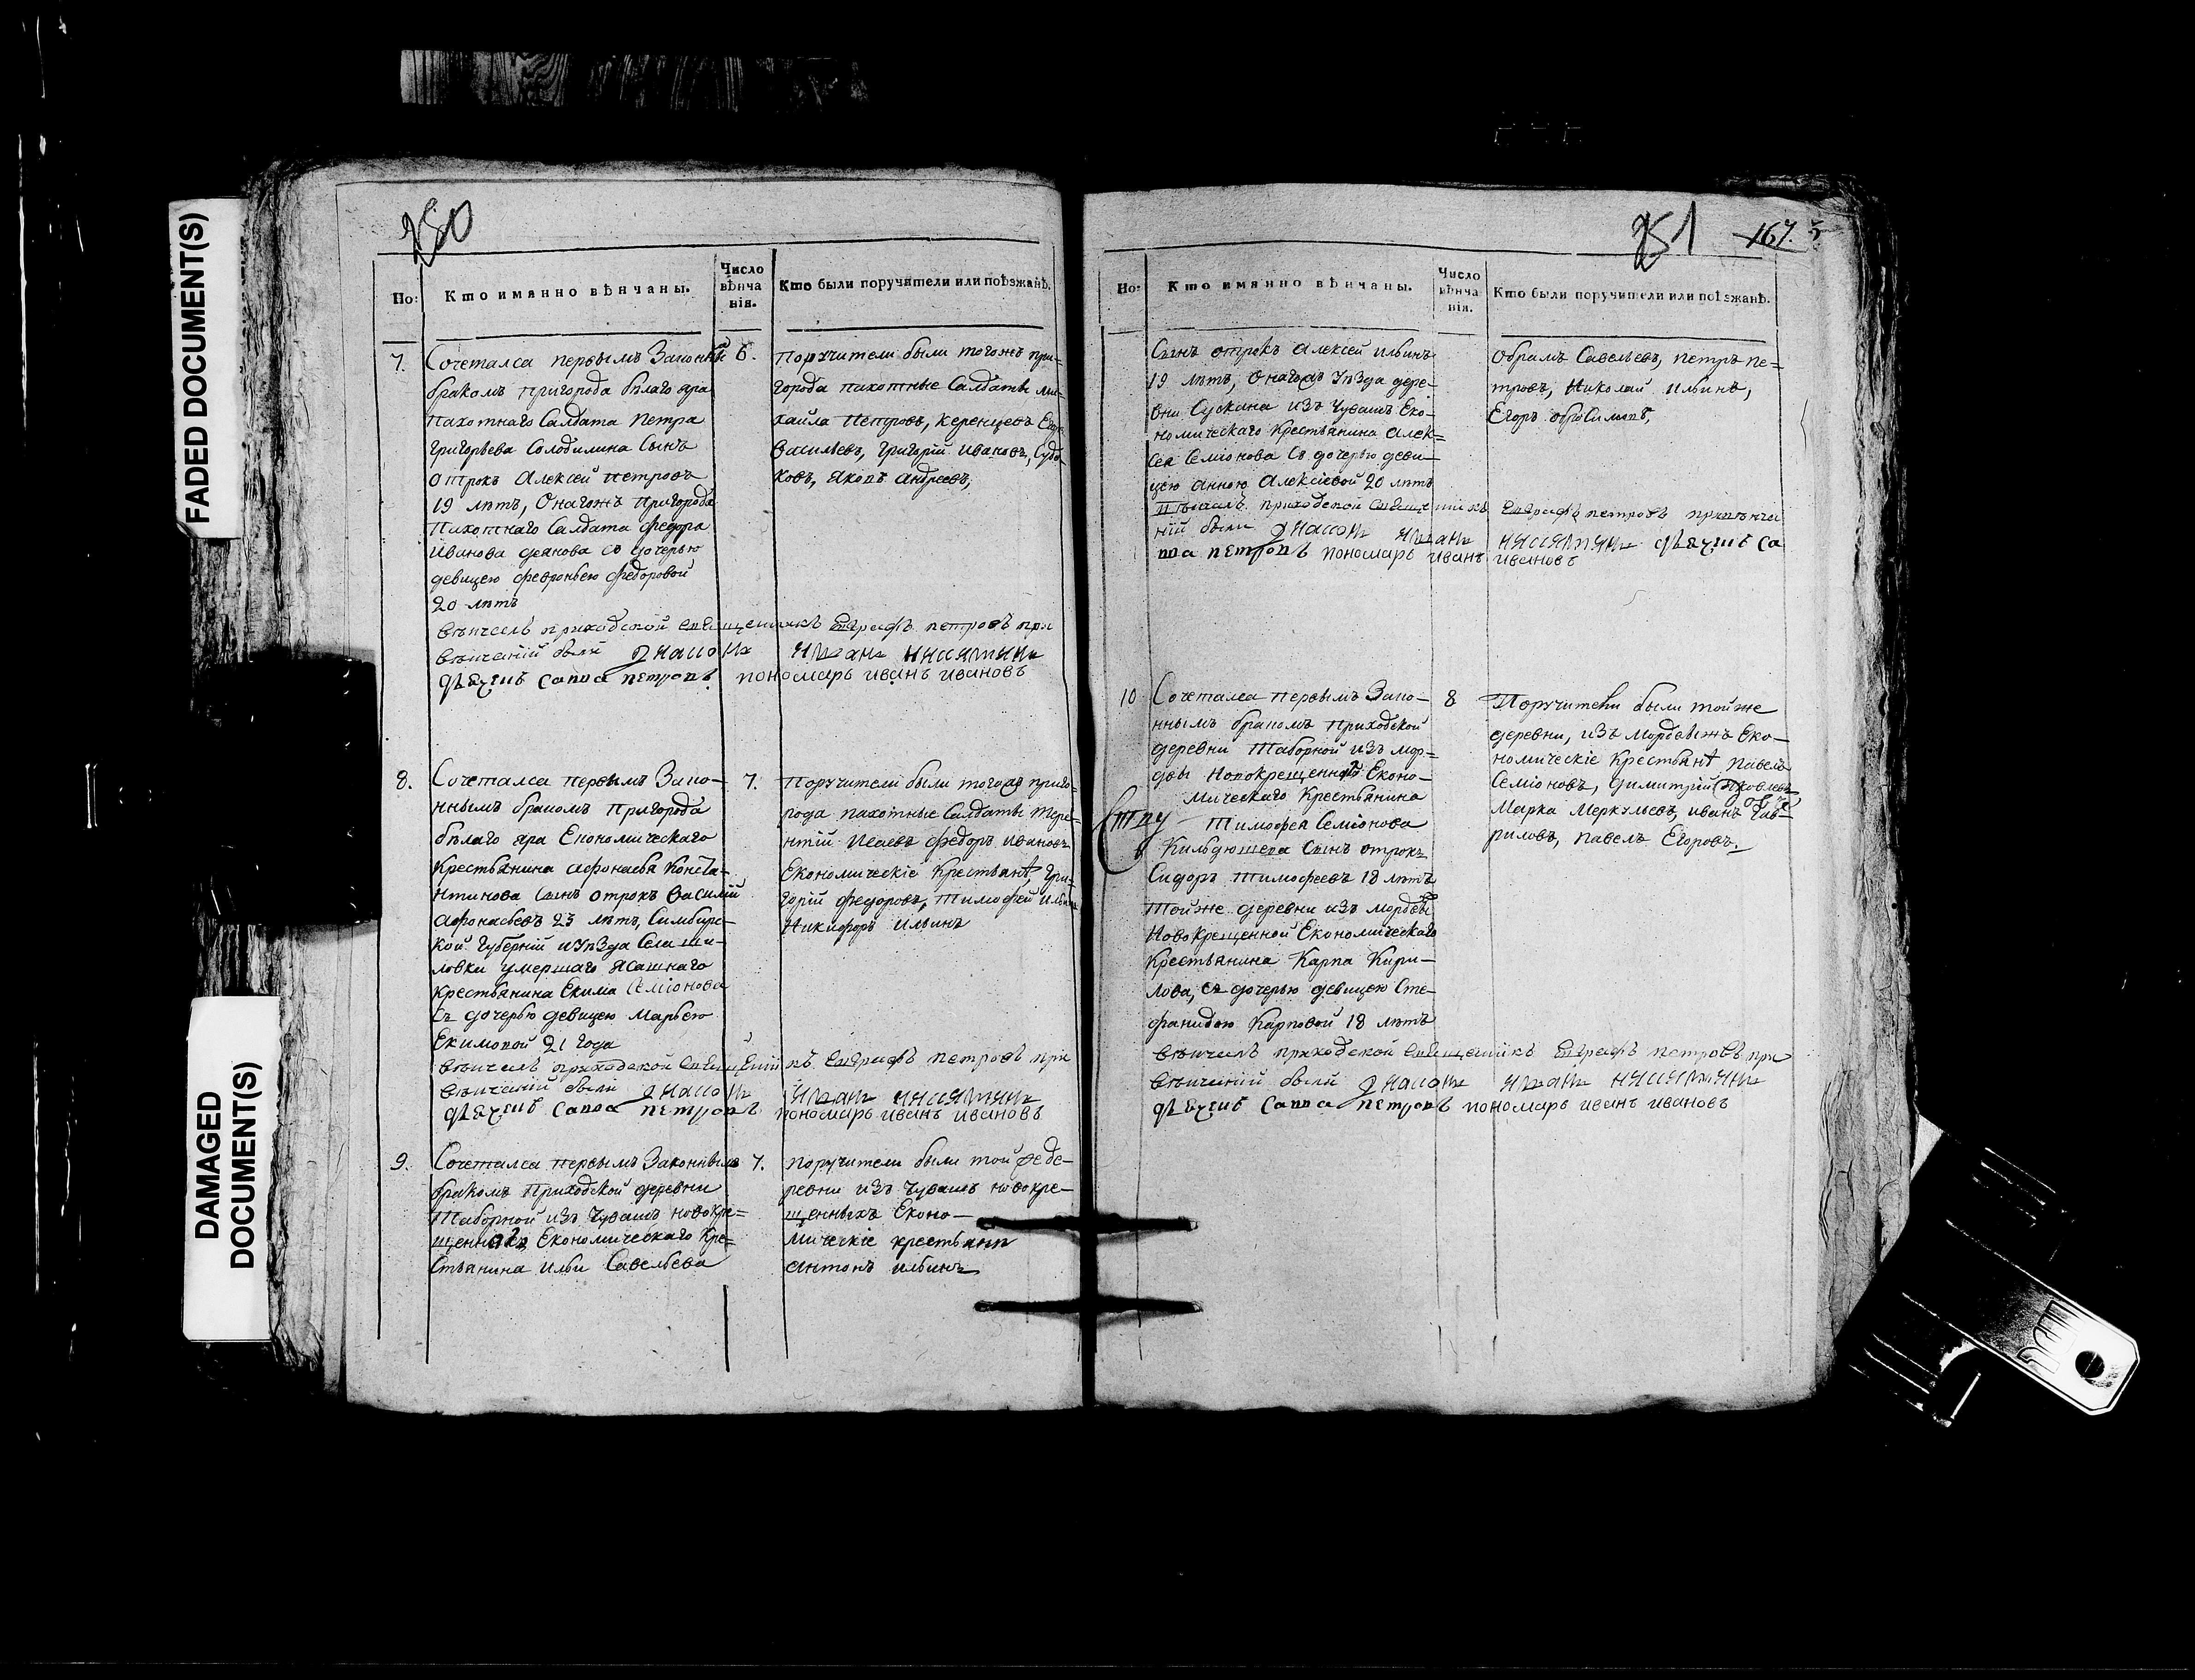 FADED DOCUMENT(S)
DAMAGED
DOCUMENT(S)
250
Но:
Кто имянно вѣнчаны.
Число
вѣнча
нія.
Кто были поручители или поѣзжанѣ.
7.
Сочетался первымъ Законны
бракомъ пригорода бѣлаго яра
пахотнаго Салдата Петра
Григорьева Солодилина Сынъ
отрокъ Алексей петровъ
19 лѣтъ, Онагожъ пригорода
Пахотнаго Салдата федора
Иванова деянова со дочерью
девицею февроньею федоровой
20 лѣтъ
6.
поручители были тогожъ при-
города пахотные Салдаты ми-
хайла Петровъ, Керенцевъ Егоръ
Васильевъ, Григорій Ивановъ, Суда-
ковъ, яковъ андреевъ,
венчалъ приходской священникъ Евграфъ петровъ при
венчаній были
савва петровъ пономарь иванъ ивановъ
8.
Сочетался первымъ Зако-
ннымъ бракомъ Пригорода
бѣлаго яра Економическаго
Крестьянина афонасья Конста-
нтинова Сынъ отрокъ Василій
афонасьевъ 23 лѣтъ, Симбирс-
кой Губерній иуѣзда Села ши-
ловки умершаго ясашнаго
крестьянина Екима Семіонова
Съ дочерью девицею Марьею
Екимовой 21 года
7.
Поручители были тогожъ приго-
рода пахотные Салдаты Тере-
нтій Исаевъ федоръ Ивановъ
Економическіе Крестьянѣ Гри-
горій федоровъ, Тимофей Ильинъ
Никифоръ Ильинъ
венчалъ приходской священникъ Евграфъ петровъ при
венчаній были
савва петровъ пономарь иванъ ивановъ
9.
Сочетался первымъ Законнымъ
бракомъ Приходской деревни
Таборной изъ Чувашъ новокре=
щенногъ Економическаго Кре=
Стьянина Ильи Савельева
7.
поручители были той же де-
ревни изъ Чувашъ новокре-
щенныхъ Еконо-
мическіе крестьянѣ
антонъ ильинъ
251
167.
Но:
Кто имянно вѣнчаны.
Число
вѣнча
нія.
Кто были поручители или поѣзжанѣ.
Сынъ отрокъ Алексей Ильинъ
19 лѣтъ, Онагожъ Уѣзда дере-
вни Сускана изъ Чувашъ Еко-
номическаго Крестьянина Алек=
сея Семіонова Со дочерью деви-
цею Анною Алексіевой 20 лѣтъ
Обрамъ Савельевъ, Петръ Пе=
тровъ, Николай Ильинъ,
Егоръ обросимовъ,
венчалъ приходской священникъ Евграфъ петровъ при венча
ній были
савва петровъ пономарь иванъ ивановъ
10
Сочетался первымъ Зако-
ннымъ бракомъ Приходской
деревни Таборной изъ мор=
двы Новокрещенногъ Еконо-
мическаго Крестьянина
Тимофея Семіонова
Кильдюшева Сынъ отрокъ
Сидоръ Тимофеевъ 18 лѣтъ
Тойже деревни изъ мордвы
Новокрещенной Економическаго
Крестьянина Карпа Кири-
лова, съ дочерью девицею Сте-
фанидою Карповой 18 лѣтъ
8
Поручители были тойже
деревни, изъ мордвыжъ Еко-
номическіе Крестьянѣ Павелъ
Семіоновъ, Димитрій Яковлевъ
Марка Меркульевъ, иванъ Гав=
риловъ, Павелъ Егоровъ.
венчалъ приходской священникъ Евграфъ петровъ при
венчаній были
савва петровъ пономарь иванъ ивановъ